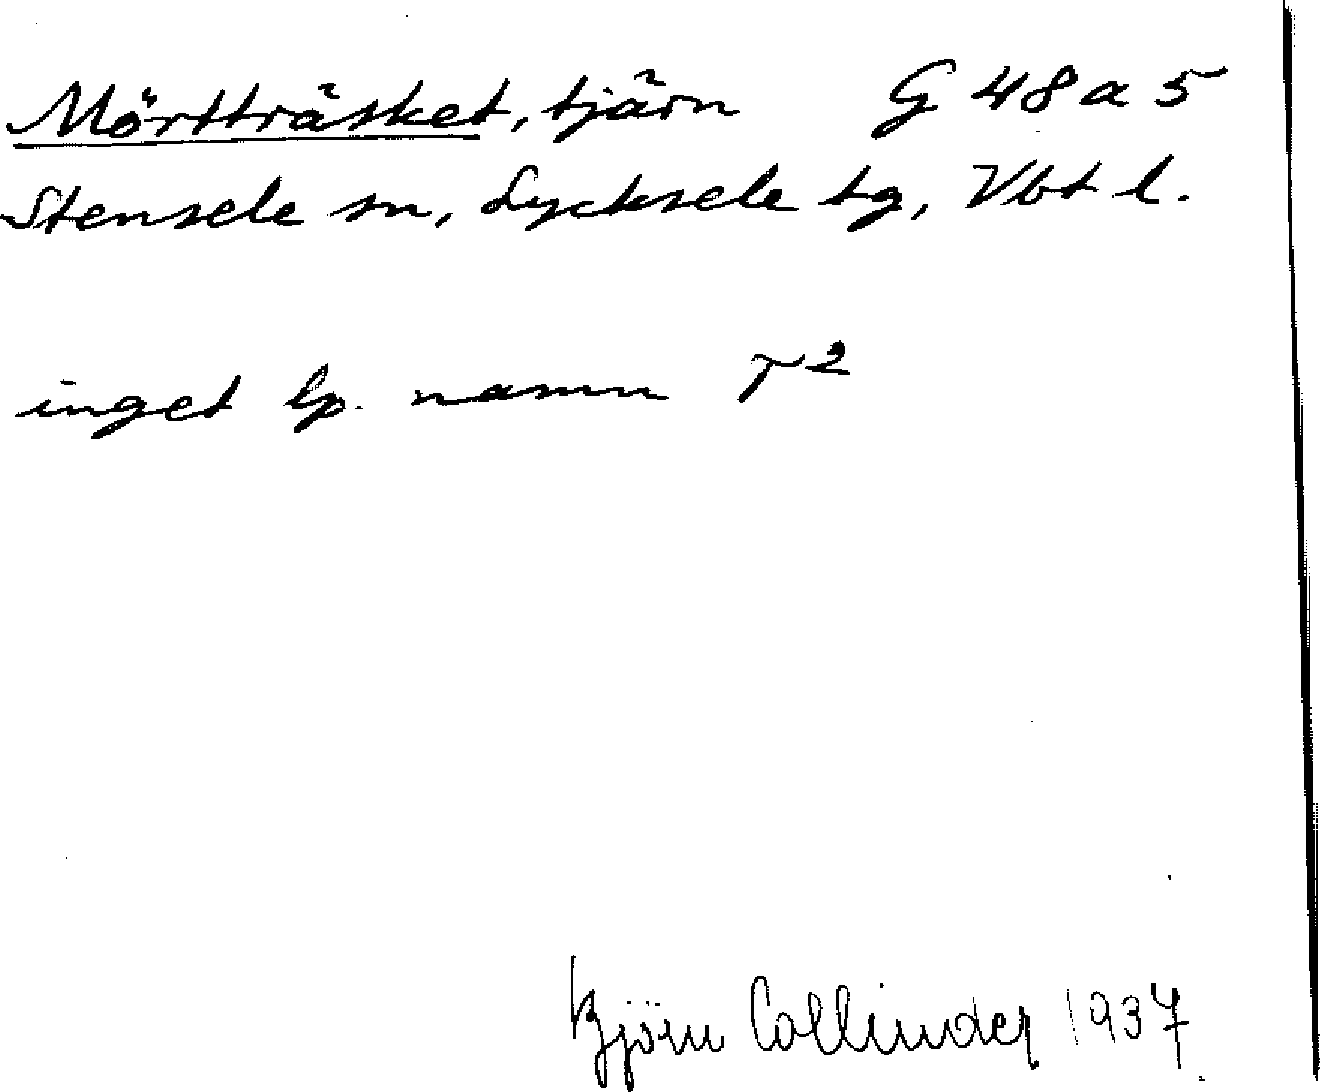 Mörtträsket, tjärn G 48 a 5
Stensele sn, Lycksele tg, Vbt l.
inget lp. namn T²
Björn Collinder 1937